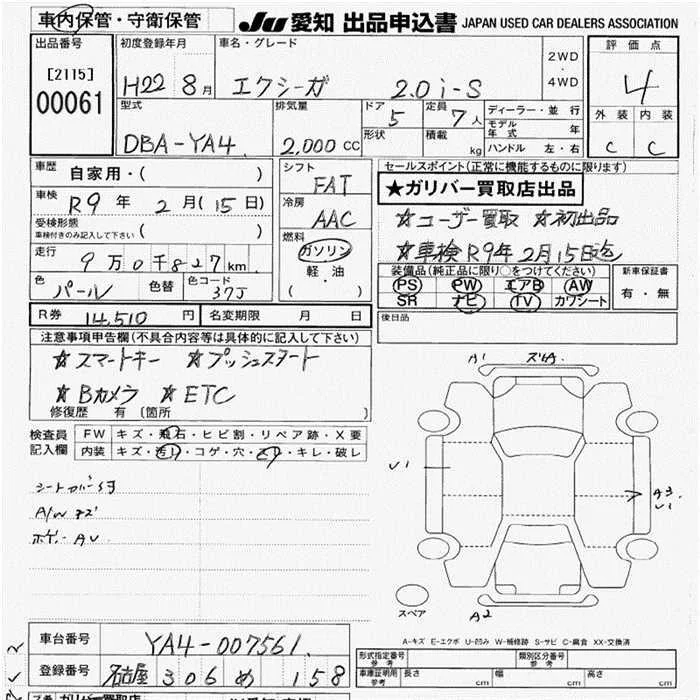 車内保管・守衛保管
JU 愛知 出品申込書 JAPAN USED CAR DEALERS ASSOCIATION
出品番号 [2115] 00061
初度登録年月 H22 8月
車名・グレード エクシーガ 2.0i-S
2WD・4WD
評価点 4
外装 C 内装 C
型式 DBA-YA4
排気量 2,000 CC
ドア 5 形状
定員 7人 積載 kg
ディーラー・並行
モデル年式 年
ハンドル 左・右
車歴 自家用・( )
車検 R9年 2月(15日)
受検形態 車検付きのみ記入して下さい ( )
走行 9万0千827km
色 パール 色替 色コード 37J
R券 14,510円 名変期限 月 日
シフト FAT
冷房 AAC
燃料 ガソリン 軽・油 ( )
セールスポイント(正常に機能するものに限ります)
★ガリバー買取店出品
☆ユーザー買取 ☆初出品
☆車検R9年2月15日迄
装備品(純正品に限り○をつけてください)
PS PW エアB AW
SR ナビ TV カワシート
新車保証書 有・無
後日品
注意事項申告欄(不具合内容等は具体的に記入して下さい)
☆スマートキー ☆プッシュスタート
☆Bカメラ ☆ETC
修復歴 有 (箇所 )
検査員記入欄
FW キズ・飛石・ヒビ割・リペア跡・X要
内装 キズ・汚レ・コゲ・穴・スレ・キレ・破レ
シートカバー付
A/W キズ
A1
U1
A3
U1
A2
スペア
A-キズ E-エクボ U-凹み W-補修跡 S-サビ C-腐食 XX-交換済
車台番号 YA4-007561
登録番号 名古屋 306 め 158
形式指定番号 参考 類別区分番号 参考
車庫証明用 参考 長さ cm 幅 cm 高さ cm
ガリバー買取店